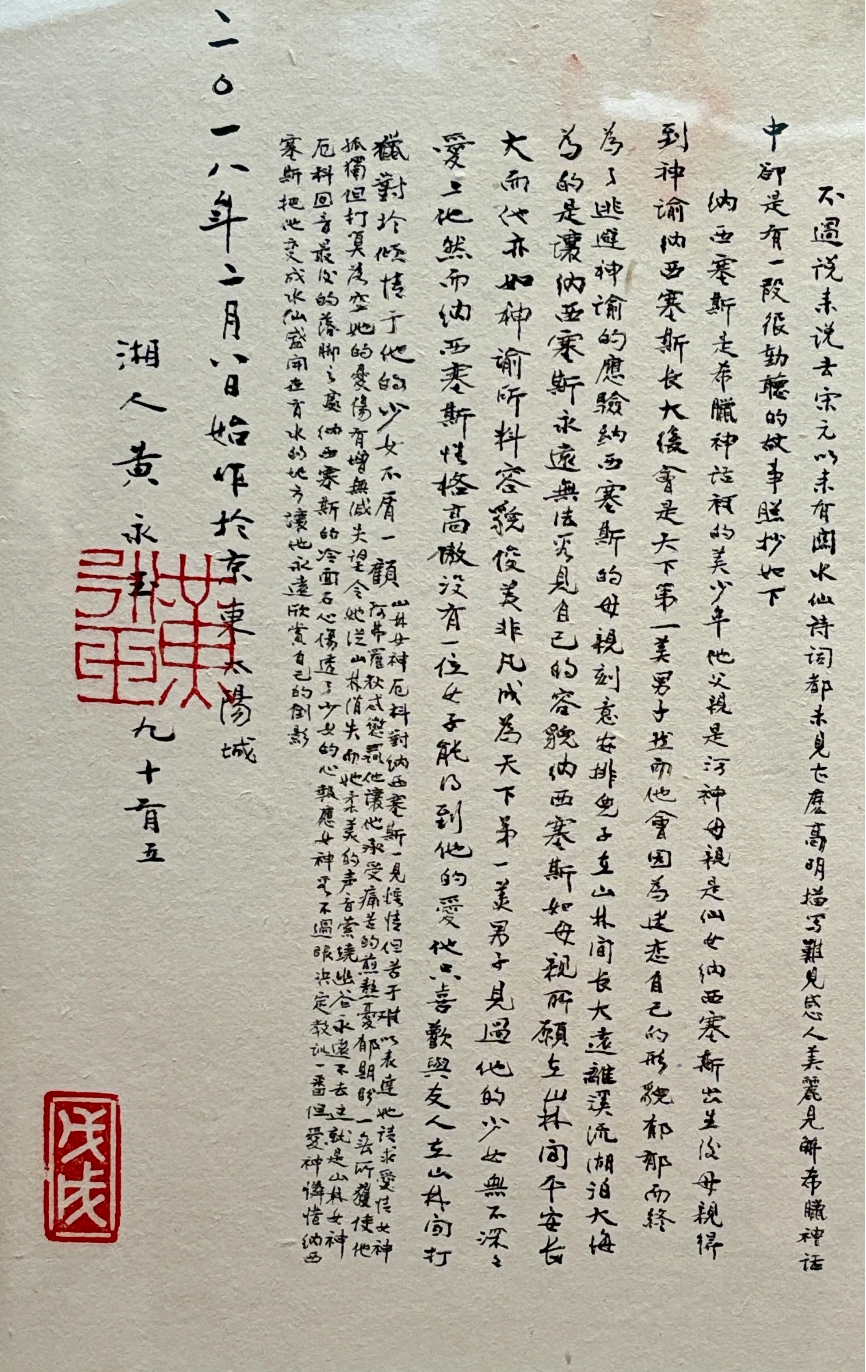 不過説来説去宋元以来有關水仙詩词都未見左麽高明描写難見感人美麗見解希臘神话
中卻是有一段很動聽的故事照抄如下
纳西塞斯是希臘神话裡的美少年他父親是河神母親是仙女纳西塞斯出生後母親得
到神谕纳西塞斯长大後會是天下第一美男子然而他會因為迷恋自己的形貌郁郁而終
為了逃避神谕的應驗纳西塞斯的母親刻意安排兒子在山林间长大遠離溪流湖泊大海
為的是讓纳西塞斯永遠無法看見自己的容貌纳西塞斯如母親所願在山林间平安长
大而他亦如神谕所料容貌俊美非凡成為天下第一美男子見過他的少女無不深々
愛上他然而纳西塞斯性格高傲没有一位女子能得到他的愛他只喜歡與友人在山林间打
獵對於倾情于他的少女不屑一顧
山林女神厄科對纳西塞斯一見鍾情但苦于难以表達她请求愛情女神
阿弗羅狄忒懲罰他讓他承受痛苦的煎熬憂郁期盼一無所獲使他
孤獨但打算落空她的憂傷有增無减失望令她從山林消失而她柔美的声音萦繞幽谷永遠不去這就是山林女神
厄科回音最後的落脚之處纳西塞斯的冷面石心傷透了少女的心報應女神看不過眼决定教训一番但愛神憐惜纳西
塞斯把他变成水仙盛開在有水的地方讓他永遠欣赏自己的倒影
二〇一八年二月八日始作於京東太陽城
湘人黄永玉九十有五
黄永玉
戊戌